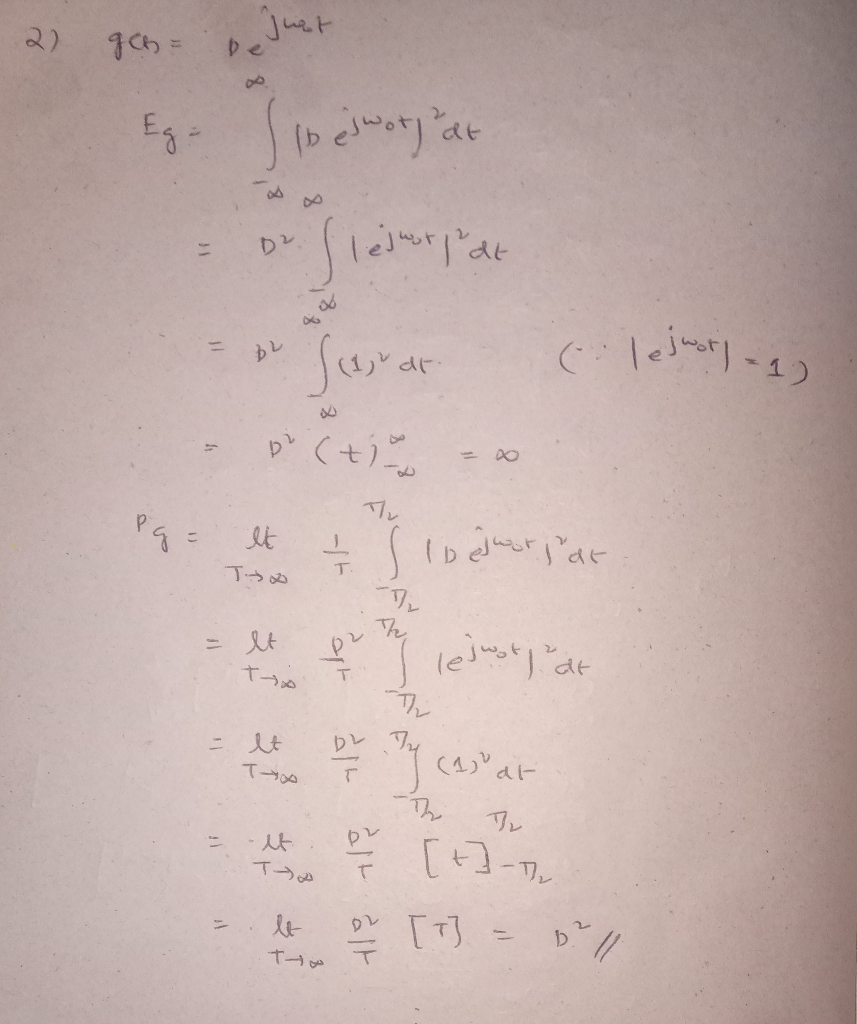 2) g(t) = D e^{jω₀t}
Eg = ∫_{-∞}^{∞} |D e^{jω₀t}|² dt
= D² ∫_{-∞}^{∞} |e^{jω₀t}|² dt
= D² ∫_{∞}^{∞} (1)² dt (∵ |e^{jω₀t}| = 1)
= D² (t)_{-∞}^{∞} = ∞
Pg = lt_{T→∞} 1/T ∫_{-T/2}^{T/2} |D e^{jω₀t}|² dt
= lt_{T→∞} D²/T ∫_{-T/2}^{T/2} |e^{jω₀t}|² dt
= lt_{T→∞} D²/T ∫_{-T/2}^{T/2} (1)² dt
= lt_{T→∞} D²/T [t]_{-T/2}^{T/2}
= lt_{T→∞} D²/T [T] = D² //